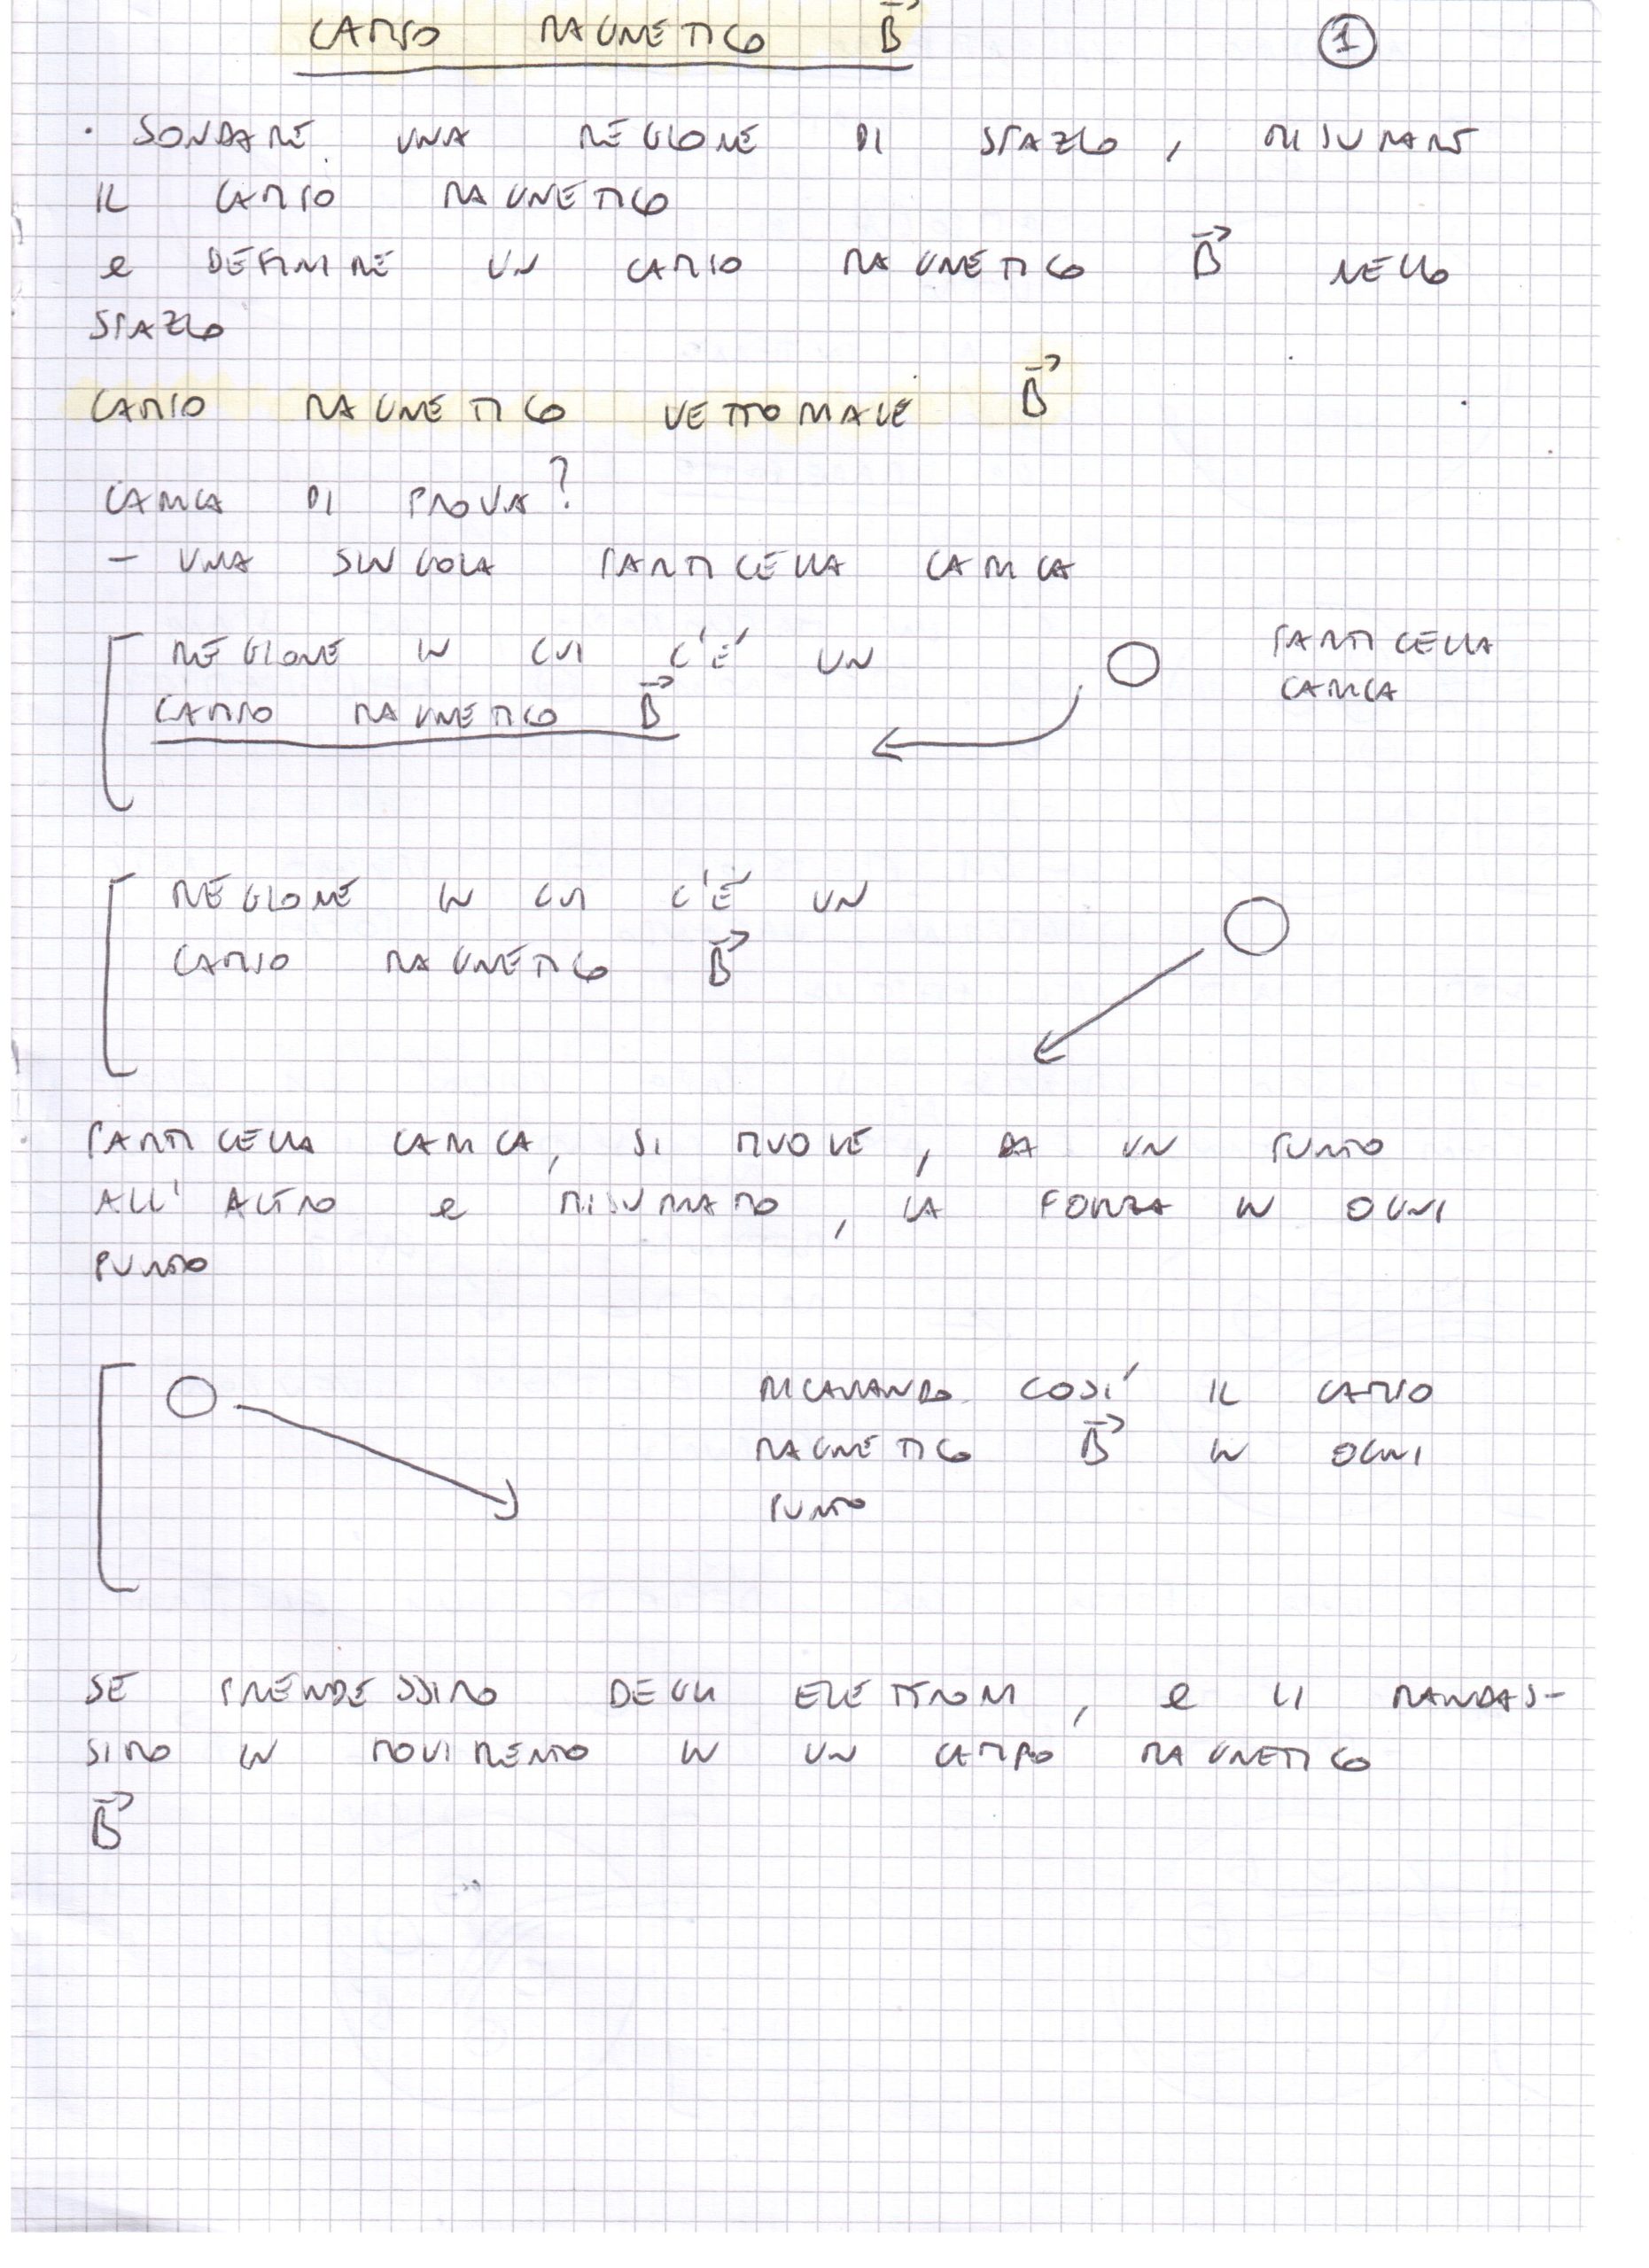 CAMPO MAGNETICO B⃗
1
· SONDARE UNA REGIONE DI SPAZIO, MISURARE
IL CAMPO MAGNETICO
e DEFINIRE UN CAMPO MAGNETICO B⃗ NELLO
SPAZIO
CAMPO MAGNETICO VETTORIALE B⃗
CARICA DI PROVA?
- UNA SINGOLA PARTICELLA CARICA
REGIONE IN CUI C'É UN
CAMPO MAGNETICO B⃗
PARTICELLA
CARICA
REGIONE IN CUI C'É UN
CAMPO MAGNETICO B⃗
PARTICELLA CARICA, SI MUOVE, DA UN PUNTO
ALL'ALTRO e MISURIAMO, LA FORZA IN OGNI
PUNTO
RICAVANDO COSÍ IL CAMPO
MAGNETICO B⃗ IN OGNI
PUNTO
SE PRENDESSIMO DEGLI ELETTRONI, e LI MANDAS-
SIMO IN MOVIMENTO IN UN CAMPO MAGNETICO
B⃗